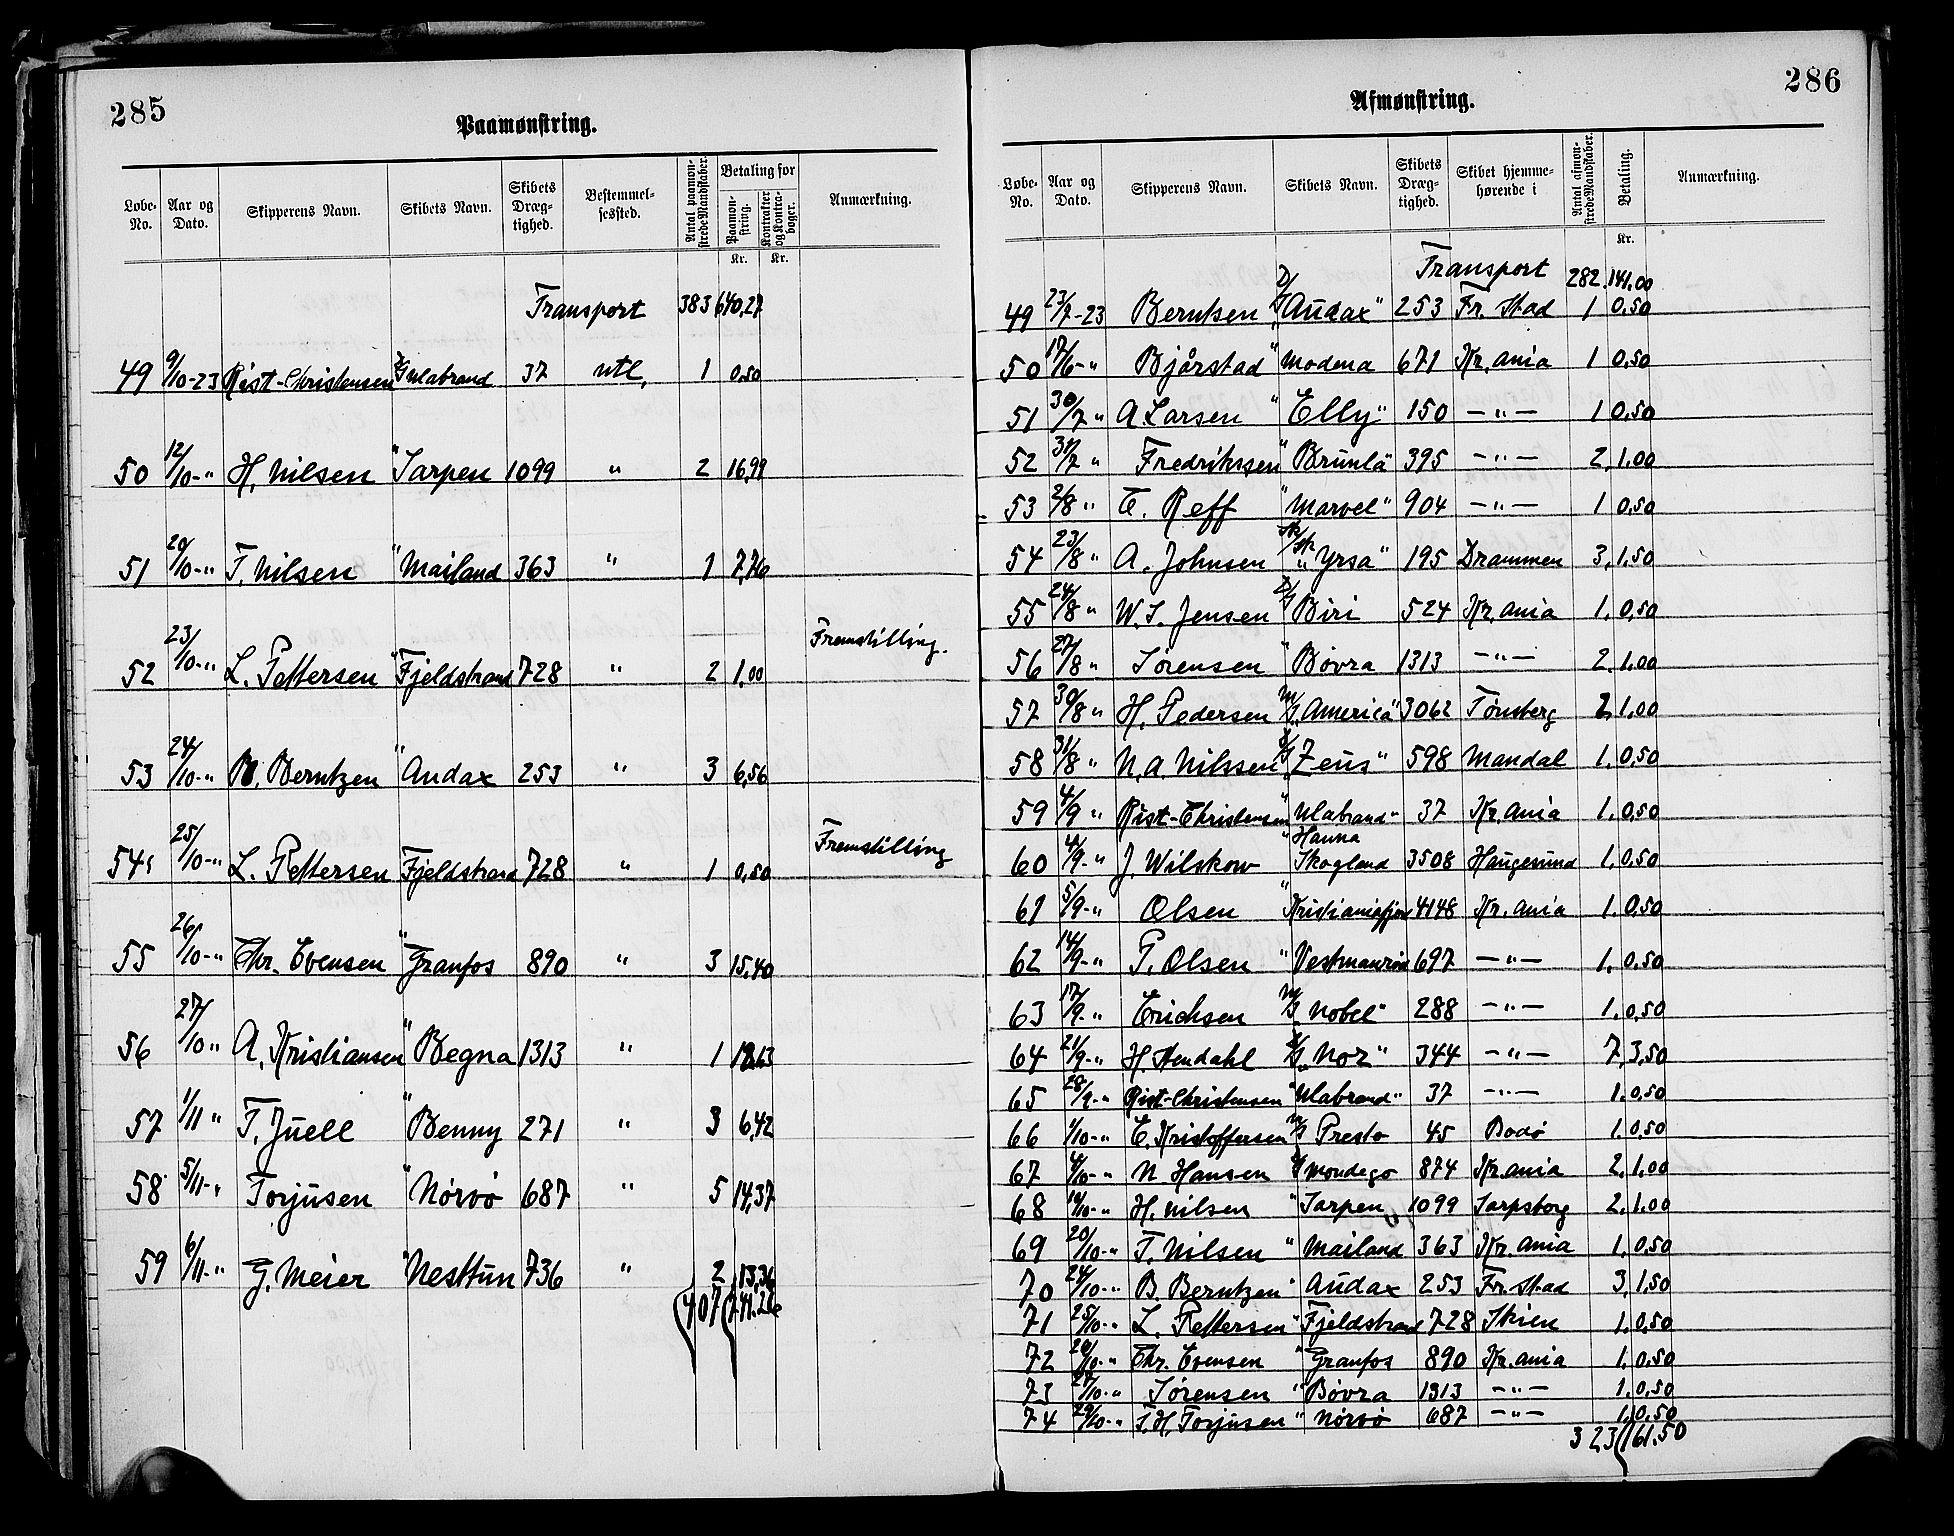 285
Paamønstring.
Løbe-No. Aar og Dato. Skipperens Navn. Skibets Navn. Skibets Dræg-tighed. Bestemmel-sessted. Antal paamøn-strede Mandskaber. Betaling for Paamøn-string. Kontrakter og Kontra-bøger. Anmærkning.
Kr. Kr.
Transport 383 640,27
49 9/10-23 Rist-Christensen Ulabrand 37 utl. 1 0,50
50 12/10-" H. Nilsen "Sarpen 1099 " 2 16,99
51 20/10-" T. Nilsen "Mailand 363 " 1 7,76
52 23/10-" L. Pettersen "Fjeldstrand 728 " 2 1,00 Fremstilling.
53 24/10-" B. Berntzen "Audax 253 " 3 6,56
54 25/10-" L. Pettersen Fjeldstrand 728 " 1 0,50 Fremstilling
55 26/10-" Chr. Evensen "Granfos 890 " 3 15,40
56 27/10 " A. Kristiansen "Begna 1313 " 1 18,63
57 1/11 " T. Juell "Benny 271 " 3 6,42
58 5/11-" Torjusen "Nørvø 687 " 5 14,37
59 6/11-" G. Meier "Nesttun 736 " 2 13,36
407 741.26
286
Afmønstring.
Løbe-No. Aar og Dato. Skipperens Navn. Skibets Navn. Skibets Dræg-tighed. Skibet hjemme-hørende i Antal afmøn-strede Mandskaber. Betaling. Anmærkning.
Kr.
Transport 282. 141,00
49 23/7-23 Berntsen D/S "Audax" 253 Fr. Stad 1 0,50
50 17/6-" Bjårstad " Modena 671 Kr.ania 1 0,50
51 30/7 " A Larsen " Elly" 150 —"— 1 0,50
52 31/7 " Fredrikssen "Brunla 395 —"— 2, 1,00
53 2/8 " E. Reff "Marvel" 904 —"— 1 0,50
54 23/8 " A. Johnsen Sk/sk "Yrsa" 195 Drammen 3, 1,50
55 24/8 " W. S. Jensen D/S Biri 524 Kr.ania 1. 0,50
56 27/8 " Sørensen "Bøvra 1313 —"— 2 1,00
57 30/8 " H. Pedersen M/S "America" 3062 Tønsberg 2, 1,00
58 31/8 " N. A. Nilssen D/S "Zeus" 598 Mandal 1. 0,50
59 4/9 " Rist-Christensen "Ulabrand" 37 Kr.ania 1. 0,50
60 4/9-" J. Wilskow "Hanna Skogland 3508 Haugesund 1. 0,50
61 5/9-" Olsen "Kristianiafjord 4148 Kr.ania 1. 0,50
62 14/9-" P. Olsen "Vestmanrød 697 —"— 1. 0,50
63 17/9-" Erichsen M/S "Nobel" 288 —"— 1. 0,50
64 21/9-" H. Stendahl D/S "Nor" 344 —"— 7, 3,50
65 28/9-" Rist-Christensen "Ulabrand" 37 —"— 1. 0,50
66 1/10-" E. Kristoffersen M/S Presto 45 Bodø 1. 0,50
67 4/10-" N Hansen D/S Mondego 874 Kr.ania 2, 1,00
68 14/10-" H. Nilsen "Sarpen 1099 Sarpsborg 2, 1,00
69 20/10-" T. Nilsen "Mailand 363 Kr. ania 1. 0,50
70 24/10-" B. Berntzen "Audax 253 Fr. Stad 3, 1,50
71 25/10-" L. Pettersen "Fjeldstrand 728 Skien 1. 0,50
72 26/10-" Chr. Evensen "Granfos 890 Kr.ania 1. 0,50
73 27/10-" Sørensen "Bøvra 1313 —"— 1. 0,50
74 29/10-" T. H. Torjusen "Nørvø 687 —"— 1. 0,50
323 161,50